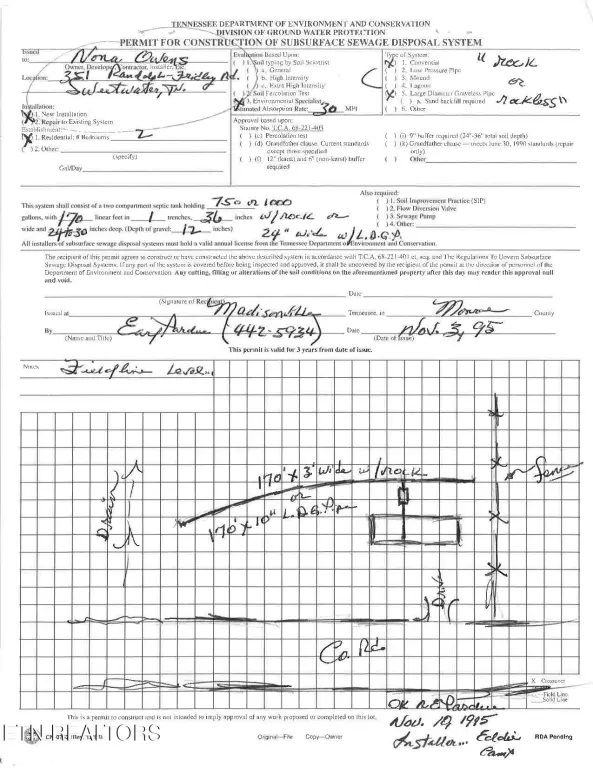 TENNESSEE DEPARTMENT OF ENVIRONMENT AND CONSERVATION
DIVISION OF GROUND WATER PROTECTION
PERMIT FOR CONSTRUCTION OF SUBSURFACE SEWAGE DISPOSAL SYSTEM
Issued to: Nona Owens
Owner, Developer, Contractor, Installer, Etc.
Location: 351 Randolph-Fridley Rd.
Sweetwater, Tn.
Installation:
(X) 1. New Installation
( ) 2. Repair to Existing System
Establishment:
(X) 1. Residential: # Bedrooms 2
( ) 2. Other:
(specify)
Gal/Day
Evaluation Based Upon:
( ) 1. Soil typing by Soil Scientist
( ) a. General
( ) b. High Intensity
( ) c. Extra High Intensity
( ) 2. Soil Percolation Test
(X) 3. Environmental Specialist
Estimated Absorption Rate: 30 MPI
Type of System:
(X) 1. Conventional
( ) 2. Low Pressure Pipe
( ) 3. Mound
( ) 4. Lagoon
(X) 5. Large Diameter Gravelless Pipe
( ) a. Sand backfill required
( ) 6. Other
"rock
or
rockless"
Approval based upon:
Statute No. T.C.A. 68-221-403
( ) (c) Percolation test
( ) (d) Grandfather clause. Current standards
except three specified
( ) (f) 12" (karst) and 6" (non-karst) buffer
required
( ) (i) 9" buffer required (24"-36" total soil depth)
( ) (k) Grandfather clause — meets June 30, 1990 standards (repair
only)
( ) Other
This system shall consist of a two compartment septic tank holding 750 or 1000
gallons, with 170 linear feet in 1 trenches, 36 inches w/rock or
wide and 24 to 30 inches deep. (Depth of gravel: 12 inches) 24" wide w/L.D.G.P.
Also required:
( ) 1. Soil Improvement Practice (SIP)
( ) 2. Flow Diversion Valve
( ) 3. Sewage Pump
( ) 4. Other:
All installers of subsurface sewage disposal systems must hold a valid annual license from the Tennessee Department of Environment and Conservation.
The recipient of this permit agrees to construct or have constructed the above described system in accordance with T.C.A. 68-221-401 et. seq. and The Regulations To Govern Subsurface
Sewage Disposal Systems. If any part of the system is covered before being inspected and approved, it shall be uncovered by the recipient of the permit at the direction of personnel of the
Department of Environment and Conservation. Any cutting, filling or alterations of the soil conditions on the aforementioned property after this day may render this approval null
and void.
Date
(Signature of Recipient)
Issued at Madisonville Tennessee, in Monroe County
By Earl Pardue (442-5934) Date Nov. 3, 95
(Name and Title) (Date of Issue)
This permit is valid for 3 years from date of issue.
Notes: Field line Level...
170' x 3' wide w/rock
or
170' x 10" L.D.G. Pipe
Drain
fence
Drive
Co. Rd.
X Comments
Field Line
Solid Line
This is a permit to construct and is not intended to imply approval of any work proposed or completed on this lot.
OK R.E. Pardue
Nov. 10, 1995
Installer... Eddie
Camp
ETN REALTORS
Original—File Copy—Owner
RDA Pending